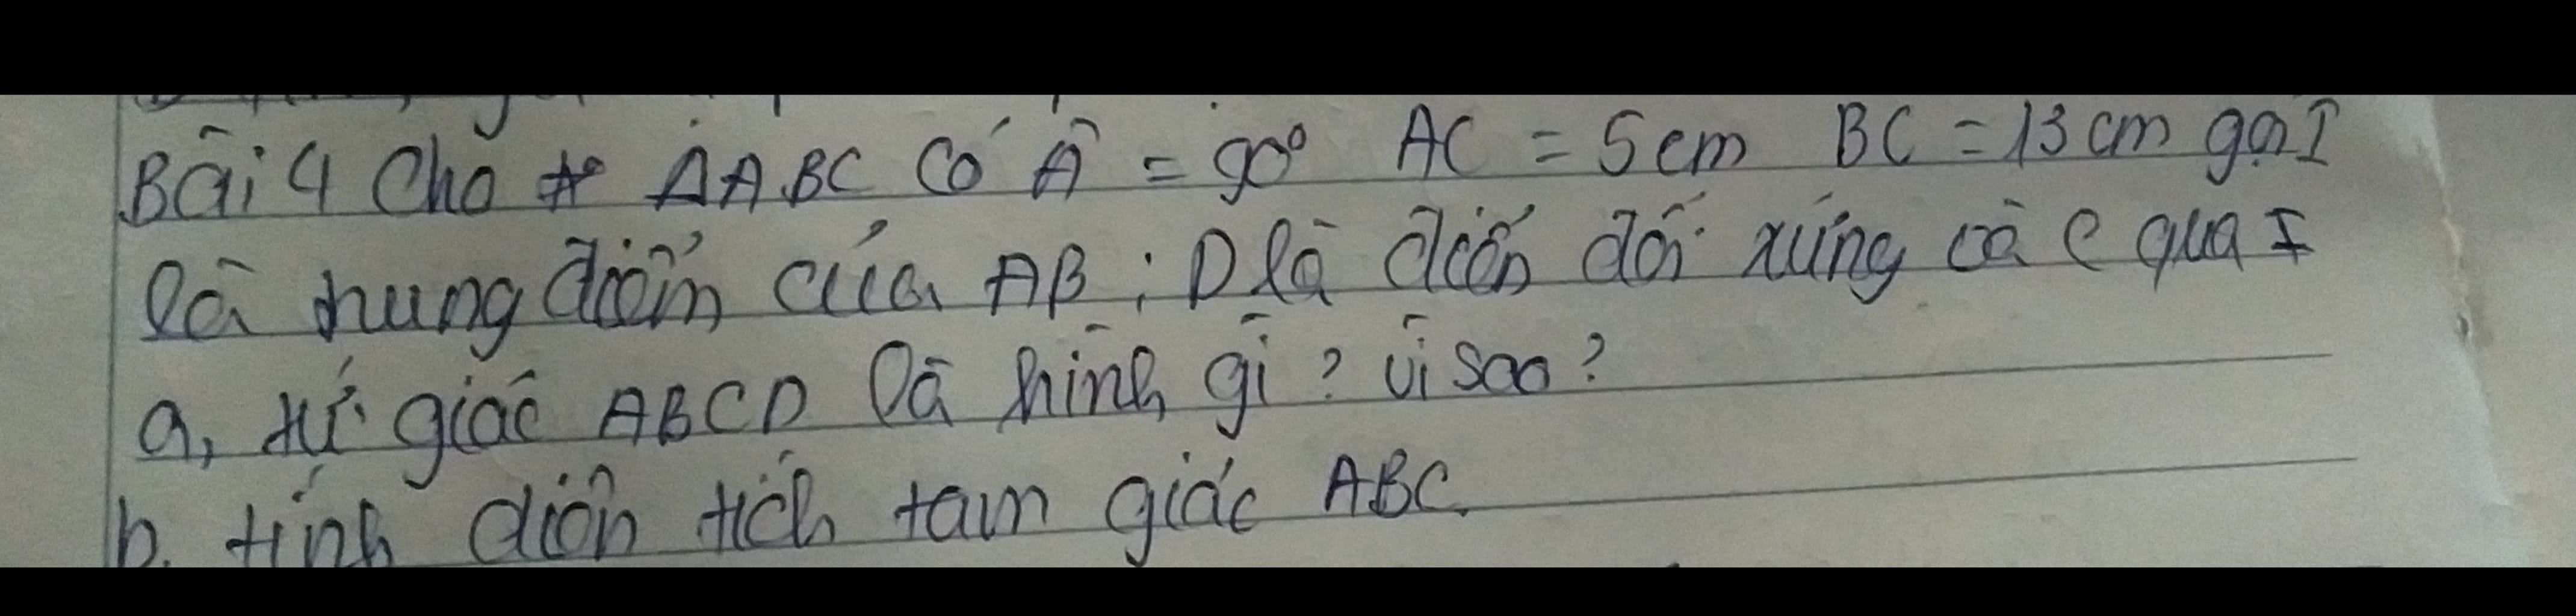 Bài 4 Cho ΔABC có Â = 90° AC = 5cm BC = 13cm gọi I
là trung điểm của AB; D là điển đối xứng cả C qua I
a, tứ giác ABCD là hình gì? vì sao?
b. tính diện tích tam giác ABC.